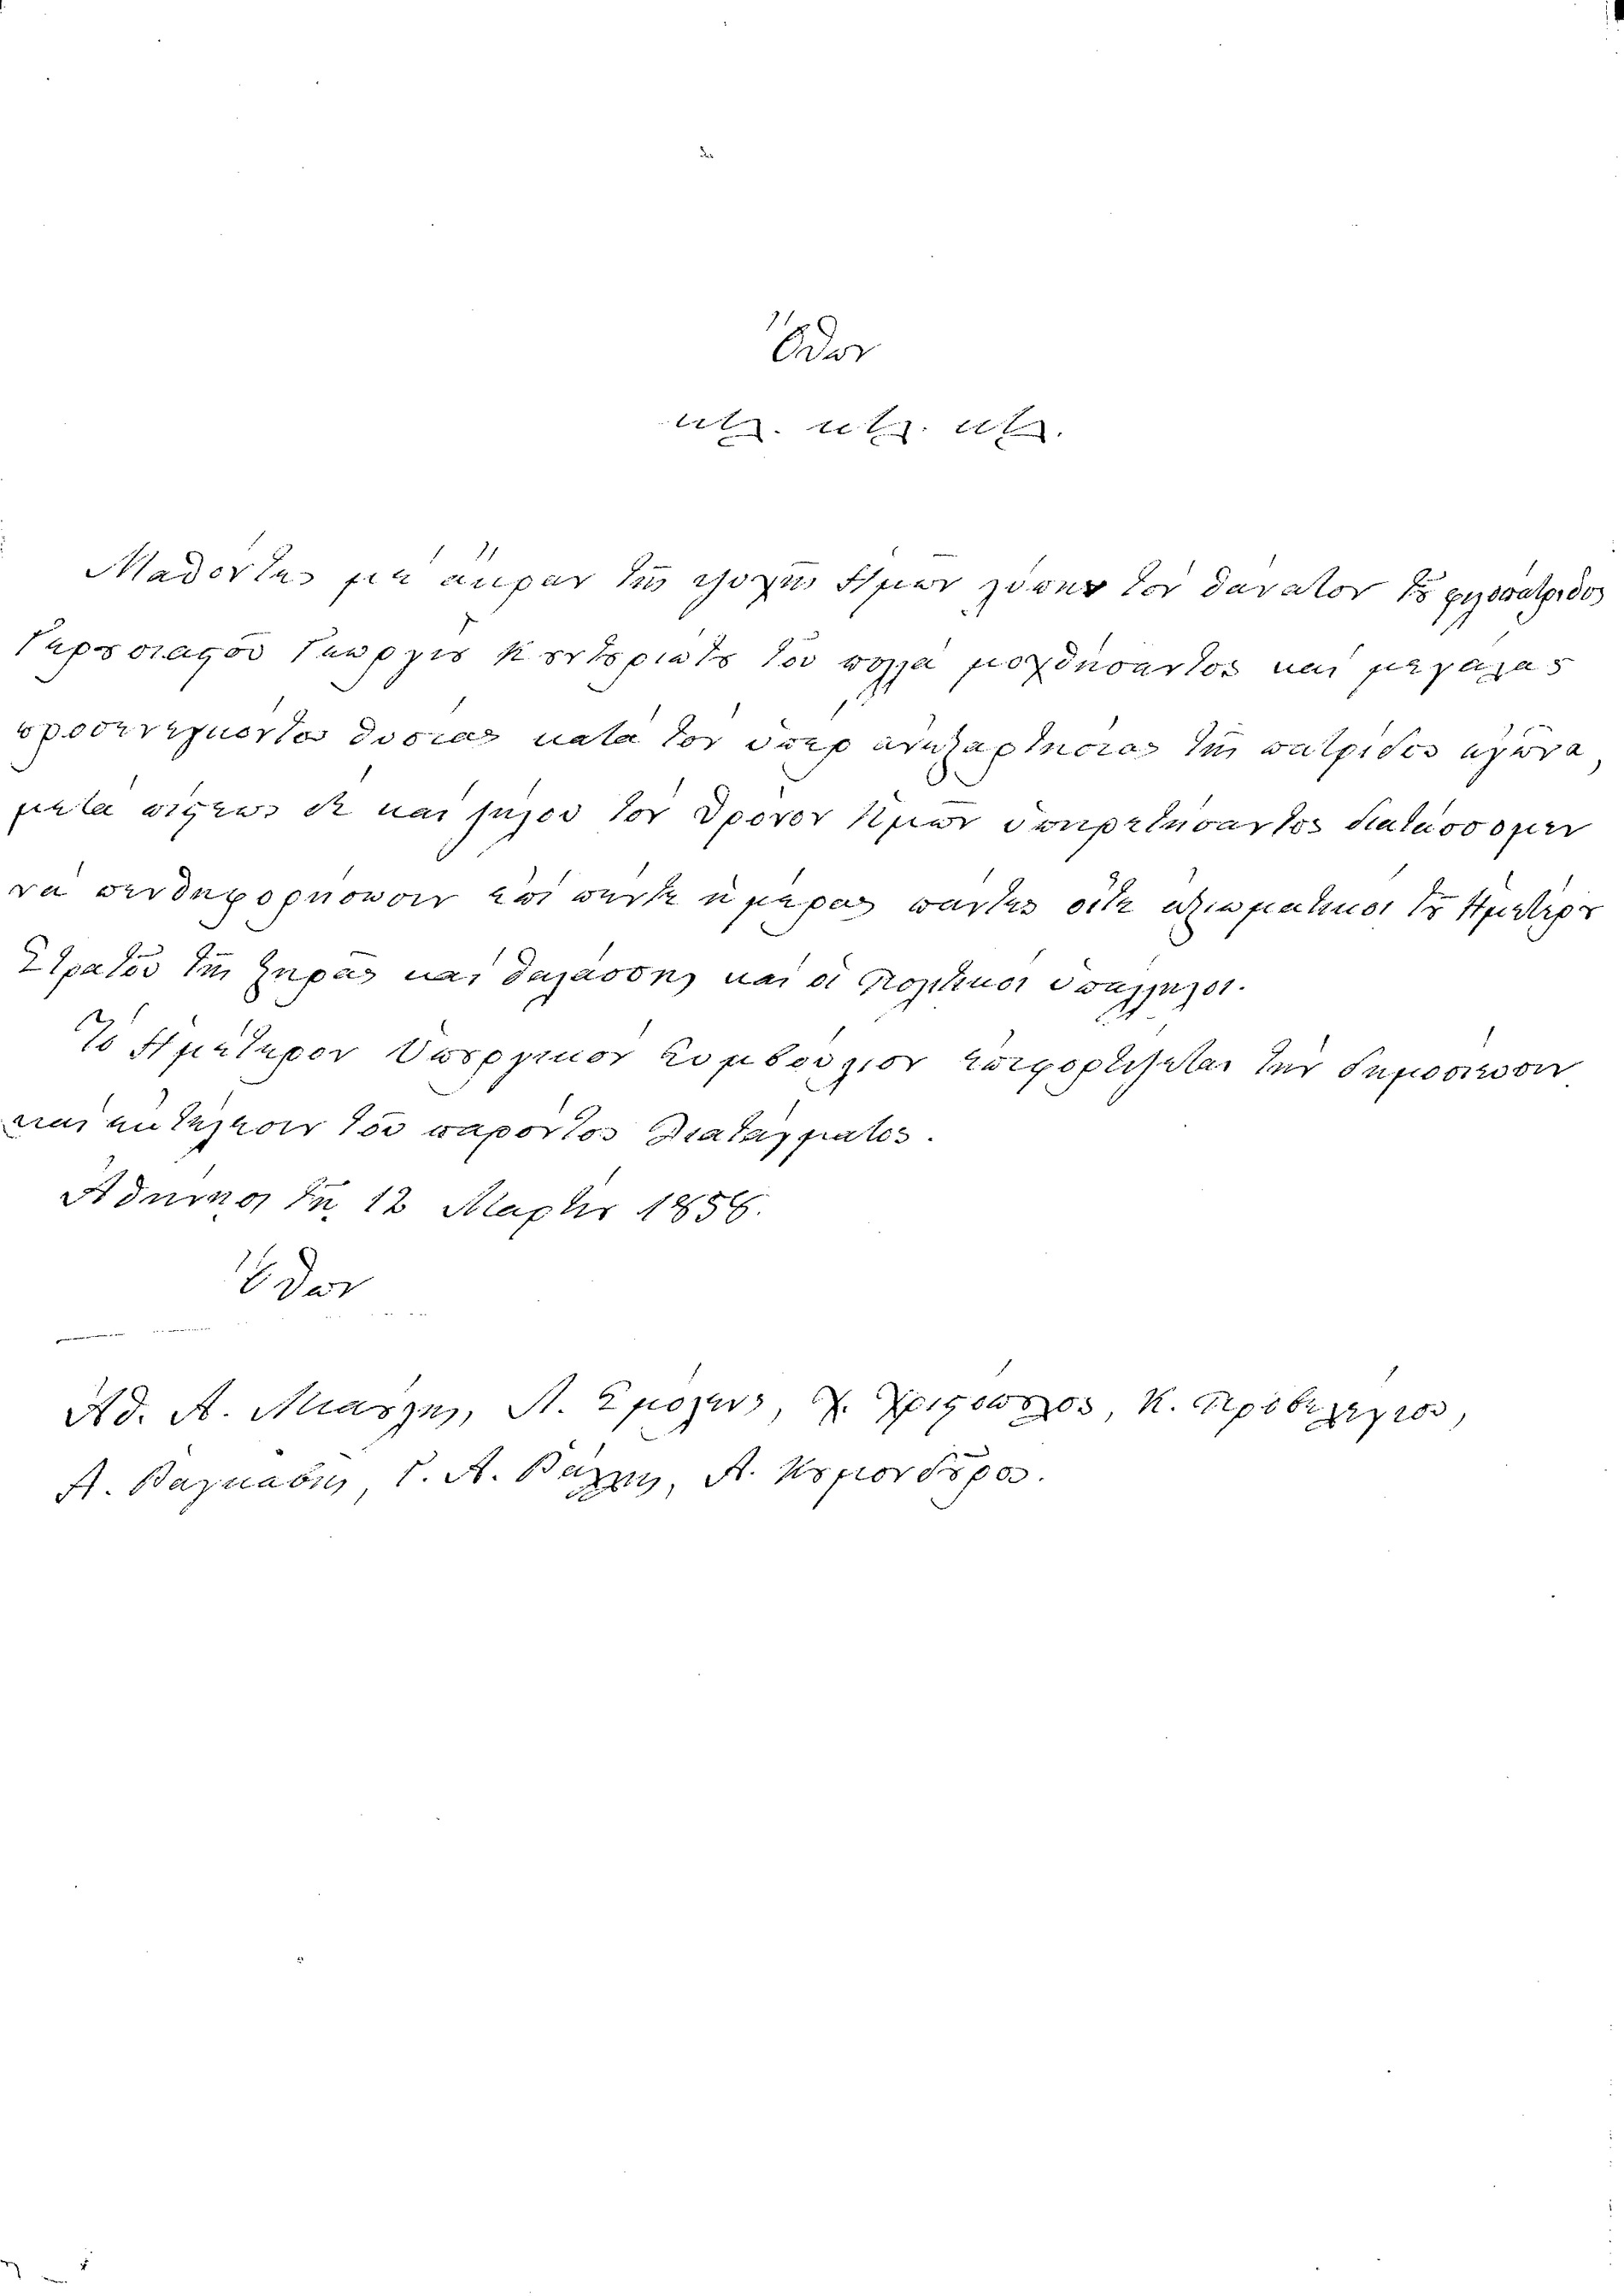 Ὄθων
κτλ. κτλ. κτλ.
Μαθόντες μετ' ἄκραν τῆς ψυχῆς Ἡμῶν λύπης τὸν θάνατον τοῦ φιλοπάτριδος
Γερουσιαστοῦ Γεωργίου Κουντουριώτου τοῦ πολλὰ μοχθήσαντος καὶ μεγάλας
προσενεγκόντος θυσίας κατὰ τὸν ὑπὲρ ἀνεξαρτησίας τῆς πατρίδος ἀγῶνα,
μετὰ πίστεως δὲ καὶ ζήλου τὸν θρόνον Ἡμῶν ὑπηρετήσαντος διατάσσομεν
νὰ πενθηφορήσωσιν ἐπὶ πέντε ἡμέρας πάντες οἵτε ἀξιωματικοὶ τοῦ Ἡμετέρου
Στρατοῦ τῆς ξηρᾶς καὶ θαλάσσης καὶ οἱ Πολιτικοὶ ὑπάλληλοι.
Τὸ Ἡμέτερον Ὑπουργικὸν Συμβούλιον ἐπιφορτίζεται τὴν δημοσίευσιν
καὶ ἐκτέλεσιν τοῦ παρόντος Διατάγματος.
Ἀθῆναι τῇ 12 Μαρτίου 1858.
Ὄθων
Αθ. Α. Μιαούλης, Λ. Σμόλενς, Χ. Χριστόπουλος, Κ. Προβελέγγιος,
Α. Ῥαγκαβῆς, Γ. Α. Ῥάλλης, Α. Κουμουνδοῦρος.